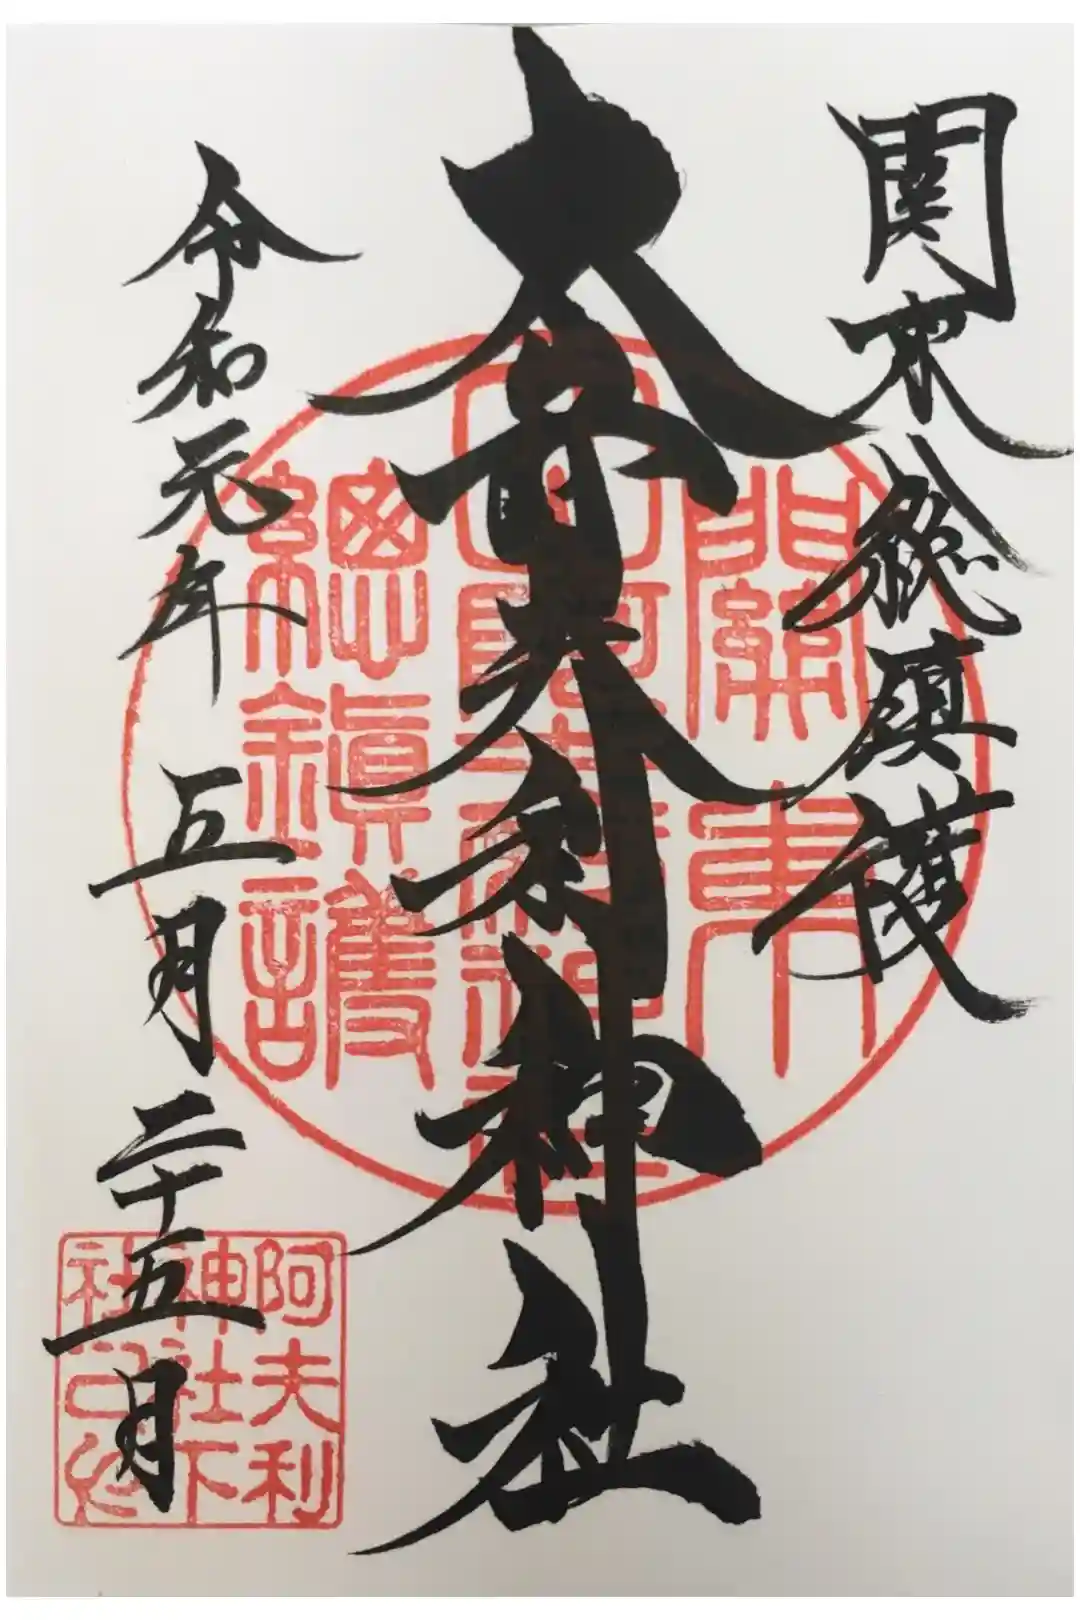 関東総鎮護
大山阿夫利神社
令和元年 五月二十五日
關東
大山阿夫利神社
總鎮護
阿夫利
神社下
社